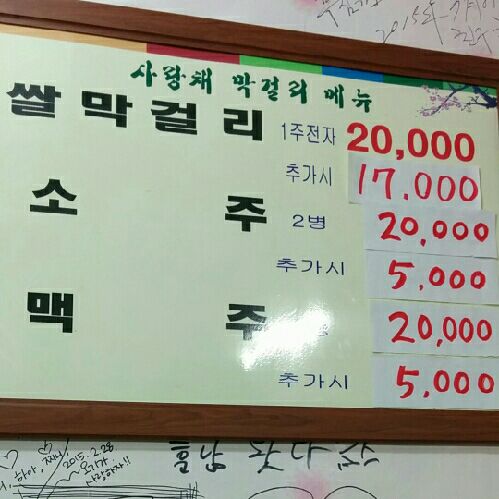 2015年
사랑채 막걸리 메뉴
쌀막걸리 1주전자 20,000
추가시 17,000
소주 2병 20,000
추가시 5,000
맥주 20,000
추가시 5,000
2015.2.28